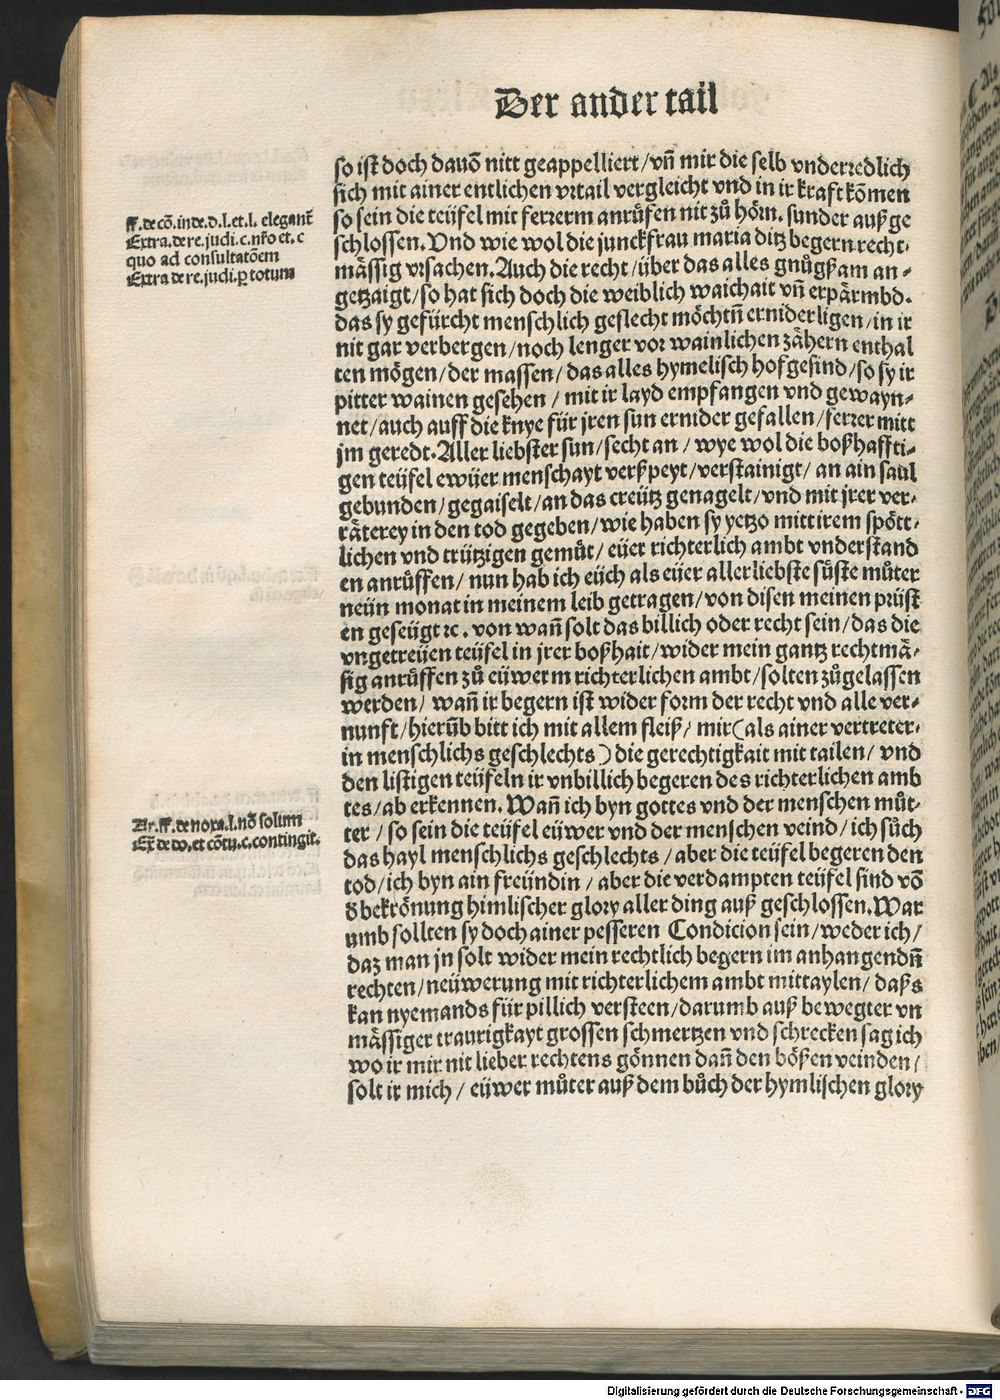 Der ander tail
so ist doch dauō nitt geappelliert/vn̄ mir die selb vnderredlich
sich mit ainer entlichen vrtail vergleicht vnd in ir kraft kōmen
so sein die teüfel mit ferrerm anrüfen nit zů hörn. sunder auß ge
schlossen. Vnd wie wol die junckfrau maria ditz begern recht⸗
mässig vrsachen. Auch die recht/über das alles gnůgßam an⸗
getzaigt/so hat sich doch die weiblich waichait vn̄ erpärmbd.
das sy gefürcht menschlich geslecht möchtn̄ erniderligen/in ir
nit gar verbergen/noch lenger vor wainlichen zähern enthal
ten mögen/der massen/das alles hymelisch hofgesind/so sy ir
pitter wainen gesehen/mit ir layd empfangen vnd gewayn⸗
net/auch auff die knye für jren sun ernider gefallen/ferrer mitt
jm geredt. Aller liebster sun/secht an/wye wol die boßhaffti⸗
gen teüfel ewüer menschayt verßpeyt/verstainigt/an ain saul
gebunden/gegaiselt/an das creütz genagelt/vnd mit jrer ver⸗
räterey in den tod gegeben/wie haben sy yetzo mitt irem spött⸗
lichen vnd trützigen gemüt/eüer richterlich ambt vnderstand
en anrüffen/nun hab ich eüch als eüer aller liebste süste můter
neün monat in meinem leib getragen/von disen meinen prüst
en geseügt ꝛc. von wan̄ solt das billich oder recht sein/das die
vngetreüen teüfel in jrer boßhait/wider mein gantz rechtmä⸗
sig anrüffen zů eüwerm richterlichen ambt/solten zůgelassen
werden/wan̄ ir begern ist wider form der recht vnd alle ver⸗
nunft/hierüb bitt ich mit allem fleiß/mir(als ainer vertreter⸗
in menschlichs geschlechts)die gerechtigkait mit tailen/vnd
den listigen teüfeln ir vnbillich begeren des richterlichen amb
tes/ab erkennen. Wan̄ ich byn gottes vnd der menschen můt⸗
ter/so sein die teüfel eüwer vnd der menschen veind/ich sůch
das hayl menschlichs geschlechts/aber die teüfel begeren den
tod/ich byn ain freündin/aber die verdampten teüfel sind vō
d̄ bekrönung himlischer glory aller ding auß geschlossen. War
umb sollten sy doch ainer pesseren Condicion sein/weder ich/
daz man jn solt wider mein rechtlich begern im anhangendn̄
rechten/neüwerung mit richterlichem ambt mittaylen/daß s
kan nyemands für pillich versteen/darumb auß bewegter vn
mässiger traurigkayt grossen schmertzen vnd schrecken sag ich
wo ir mir nit lieber rechtens gönnen dan̄ den bößen veinden/
solt ir mich/eüwer můter auß dem bůch der hymlischen glory
ff. de cō. in de. d. l. et. l. elegant̄
Extra. de re. judi. c. nr̄o et. c
quo ad consultatōem
Extra de re. judi. ꝑ totum
Ar. ff. de noxa. l. nō solum
Ex̄ de do. et cōtu. c. contingit.
Digitalisierung gefördert durch die Deutsche Forschungsgemeinschaft - DFG